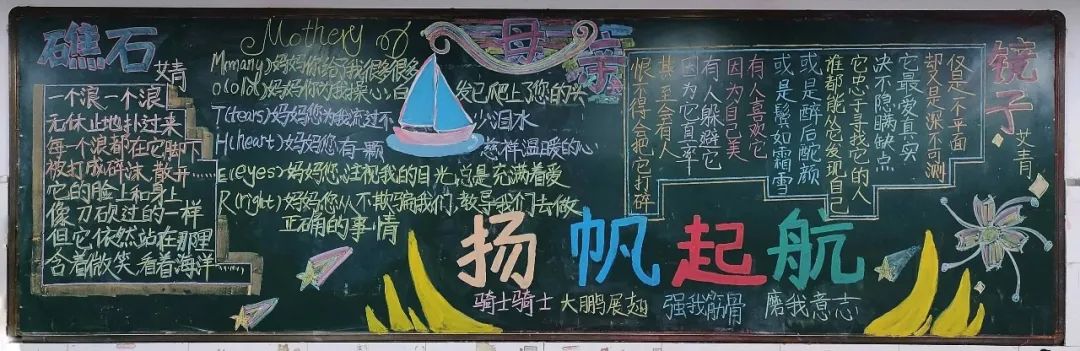 礁石
艾青
一个浪，一个浪
无休止地扑过来
每一个浪都在它脚下
被打成碎沫，散开……
它的脸上和身上
像刀砍过的一样
但它依然站在那里
含着微笑，看着海洋……
Mothery
母亲
M(many)妈妈你给了我很多很多
O(old)妈妈你为我操心，白发已爬上了您的头
T(tears)妈妈您为我流过不少泪水
H(heart)妈妈您有一颗慈祥温暖的心
E(eyes)妈妈您注视我的目光总是充满着爱
R(right)妈妈您从不欺骗我们，教导我们去做
正确的事情
镜子
艾青
仅是一个平面
却又是深不可测
它最爱真实
决不隐瞒缺点
它忠于寻找它的人
谁都能从它发现自己
或是醉后酡颜
或是鬓如霜雪
有人喜欢它
因为自己美
有人躲避它
因为它真率
甚至会有人
恨不得会把它打碎
扬帆起航
骑士骑士 大鹏展翅 强我筋骨 磨我意志